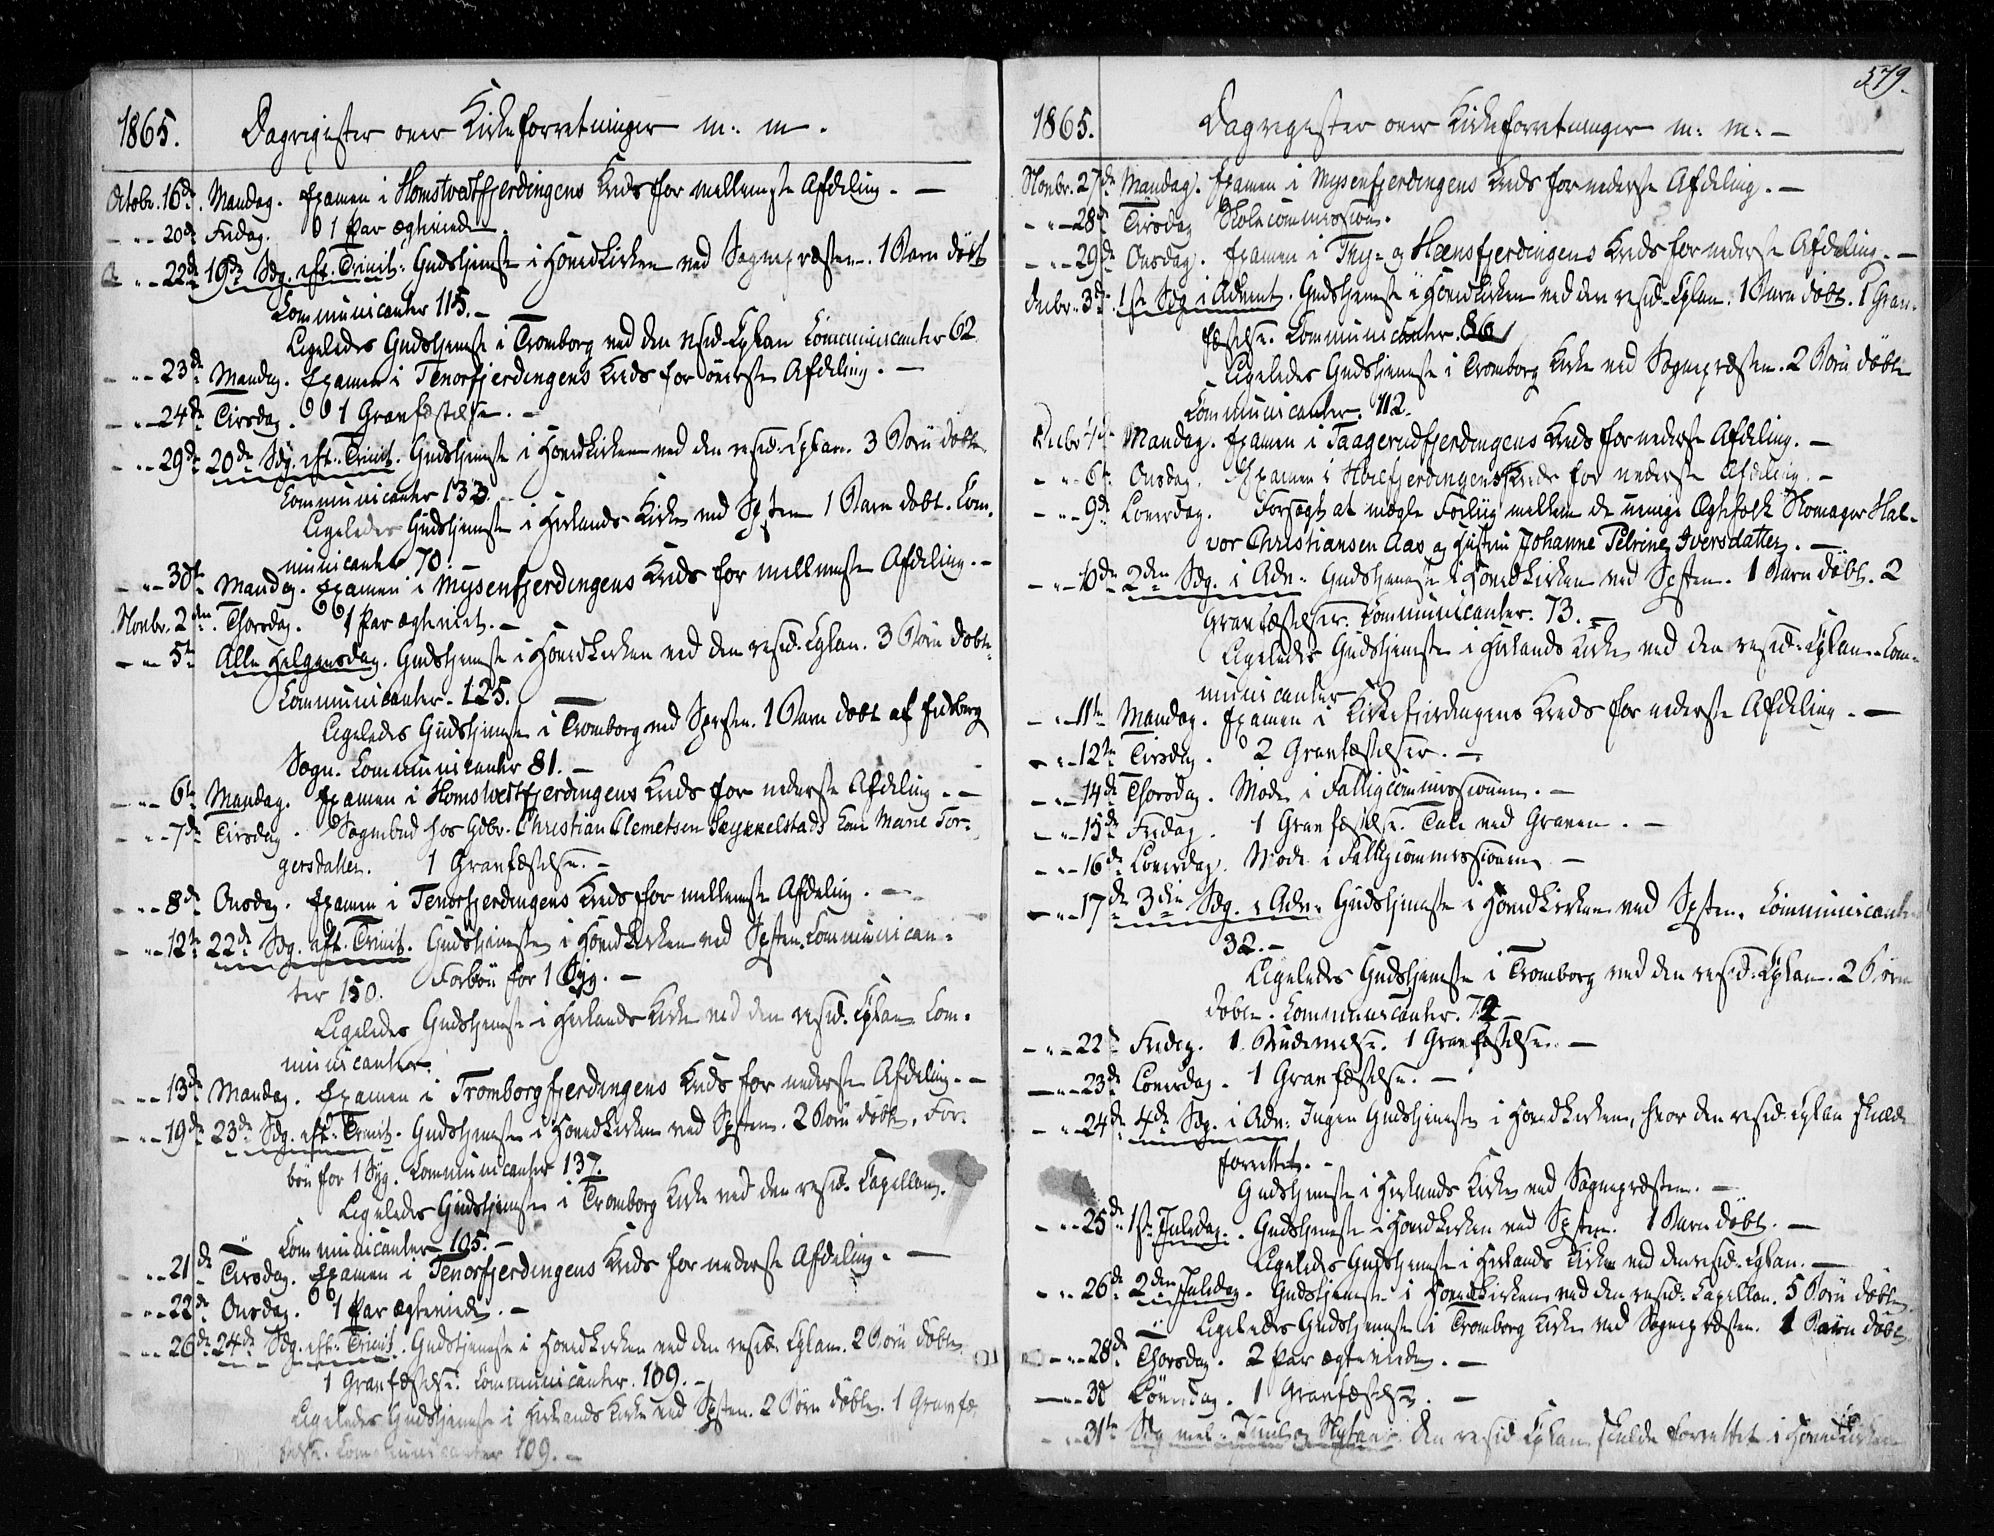 1865. Dagregister over Kirkeforretninger m: m.
Octobr. 16de Mandag. Examen i Homstvedtfjerdingens Kreds for mellemste Afdeling. —
— " — 20de Fredag. 1 Par ægteviede.
— " — 22de 19de Sdg. eft. Trinit: Gudstjeneste i Hovedkirken ved Sognepræsten. 1 Barn döbt
Communicanter 115. —
Ligeledes Gudstjeneste i Tromborg ved den resid. Cplan Communicanter 62
— " — 23de Mandag. Examen i Tenorfjerdingens Kreds for överste Afdeling. —
— " — 24de Tirsdag. 1 Gravfæstelse. —
— " — 29de 20de Sdg. eft. Trinit. Gudstjeneste i Hovedkirken ved den resid. Cplan. 3 Börn döbte
Communicanter 133. —
Ligeledes Gudstjeneste i Herlands Kirke ved Spsten 1 Barn döbt. Com-
municanter 70. —
— " — 30te Mandag. Examen i Mysenfjerdingens Kreds for mellemste Afdeling. —
Novbr. 2den Thorsdag. 1 Par ægteviet. —
— " — 5te Alle Helgensdag. Gudstjeneste i Hovedkirken ved den resid. Cplan. 3 Börn döbte.
Communicanter. 125.
Ligeledes Gudstjeneste i Tromborg ved Spsten. 1 Barn döbt af Eidsberg
Sogn. Communicanter 81. —
— " — 6te Mandag. Examen i Homstvedtfjerdingens Kreds for nederste Afdeling. —
— " — 7de Tirsdag. Sognebud hos Gdbr. Christian Clemetsen Kone Marie Tor-
gersdatter. 1 Gravfæstelse. —
— " — 8de Onsdag. Examen i Tenorfjerdingens Kreds for mellemste Afdeling. —
— " — 12te 22de Sdg. eft. Trinit. Gudstjeneste i Hovedkirken ved Spsten. Communican-
ter 150. Forbön for 1 Syg. —
Ligeledes Gudstjeneste i Herlands Kirke ved den resid. Cplan. Com-
municanter.
— " — 13de Mandag. Examen i Tromborgfjerdingens Kreds for nederste Afdeling. —
— " — 19de 23de Sdg. eft. Trinit. Gudstjeneste i Hovedkirken ved Spsten. 2 Börn döbte. For-
bön for 1 Syg. Communicanter 137.
Ligeledes Gudstjeneste i Tromborg Kirke ved den resid. Capellan.
Communicanter 105. —
— " — 21de Tirsdag. Examen i Tenorfjerdingens Kreds for nederste Afdeling. —
— " — 22de Onsdag. 1 Par ægteviede. —
— " — 26de 24de Sdg. eft. Trinit. Gudstjeneste i Hovedkirken ved den resid. Cplan. 2 Börn döbte
1 Gravfæstelse. Communicanter. 109. —
Ligeledes Gudstjeneste i Herlands Kirke ved Spsten. 2 Börn döbte. 1 Gravfæ
Communicanter 109. —
579.
1865. Dagregister over Kirkeforretninger m: m: —
Novbr. 27de Mandag. Examen i Mysenfjerdingens Kreds for nederste Afdeling. —
— " — 28de Tirsdag Skolecommission.
— " — 29de Onsdag. Examen i og Hænsfjerdingens Kreds for nederste Afdeling. —
Decbr. 3die 1ste Sdg i Advent. Gudstjeneste i Hovedkirken ved den resid. Cplan. 1 Barn döbt. 1 Grav-
fæstelse. Communicanter. 86
Ligeledes Gudstjeneste i Tromborg Kirke ved Sognepræsten. 2 Börn döbte
Communicanter. 112.
Decbr 4de Mandag. Examen i Taagerudfjerdingens Kreds for nederste Afdeling. —
— " — 6te Onsdag. Examen i Kreds for nederste Afdeling. —
— " — 9de Löverdag. Forsögt at mægle Forliig mellem de uenige Ægtefolk Skomager Hal-
vor Christiansen Aas og Hustru Johanne Petrine Iversdatter. —
— " — 10de 2den Sdg. i Adv: Gudstjeneste i Hovedkirken ved Spsten. 1 Barn döbt. 2
Gravfæstelser. Communicanter. 73. —
Ligeledes Gudstjeneste i Herlands Kirke ved den resid. Cplan. Com-
municanter
— " — 11te Mandag. Examen i Kirkefjerdingens Kreds for nederste Afdeling. —
— " — 12te Tirsdag. 2 Gravfæstelser. —
— " — 14de Thorsdag. Möde i Fattigcommissionen. —
— " — 15de Fredag. 1 Gravfæstelse. Tale ved Graven. —
— " — 16de Löverdag. Möde i Fattigcommissionen —
— " — 17de 3die Sdg. i Adv: Gudstjeneste i Hovedkirken ved Spsten. Communicanter
32. —
Ligeledes Gudstjeneste i Tromborg ved den resid. Cplan. 2 Börn
döbte. Communicanter. 72 —
— " — 22de Fredag. 1 Brudevielse. 1 Gravfæstelse. —
— " — 23de Löverdag. 1 Gravfæstelse. —
— " — 24de 4de Sdg. i Adv: Ingen Gudstjeneste i Hovedkirken, hvor den resid. Cplan skulde
forrettet. —
Gudstjeneste i Herlands Kirke ved Sognepræsten. —
— " — 25de 1ste Juledag. Gudstjeneste i Hovedkirken ved Spsten. 1 Barn döbt. —
Ligeledes Gudstjeneste i Herlands Kirke ved den resid. Cplan. —
— " — 26de 2den Juledag. Gudstjeneste i Hovedkirken ved den resid. Capellan. 5 Börn döbte
Ligeledes Gudstjeneste i Tromborg Kirke ved Sognepræsten. 1 Barn döbt
— " — 28de Thorsdag. 2 Par ægteviede. —
— " — 30 Löverdag. 1 Gravfæstelse. —
— " — 31te Sdg mel. Juul og Nytaar. Den resid Cplan skulde forrettet i Hovedkirken